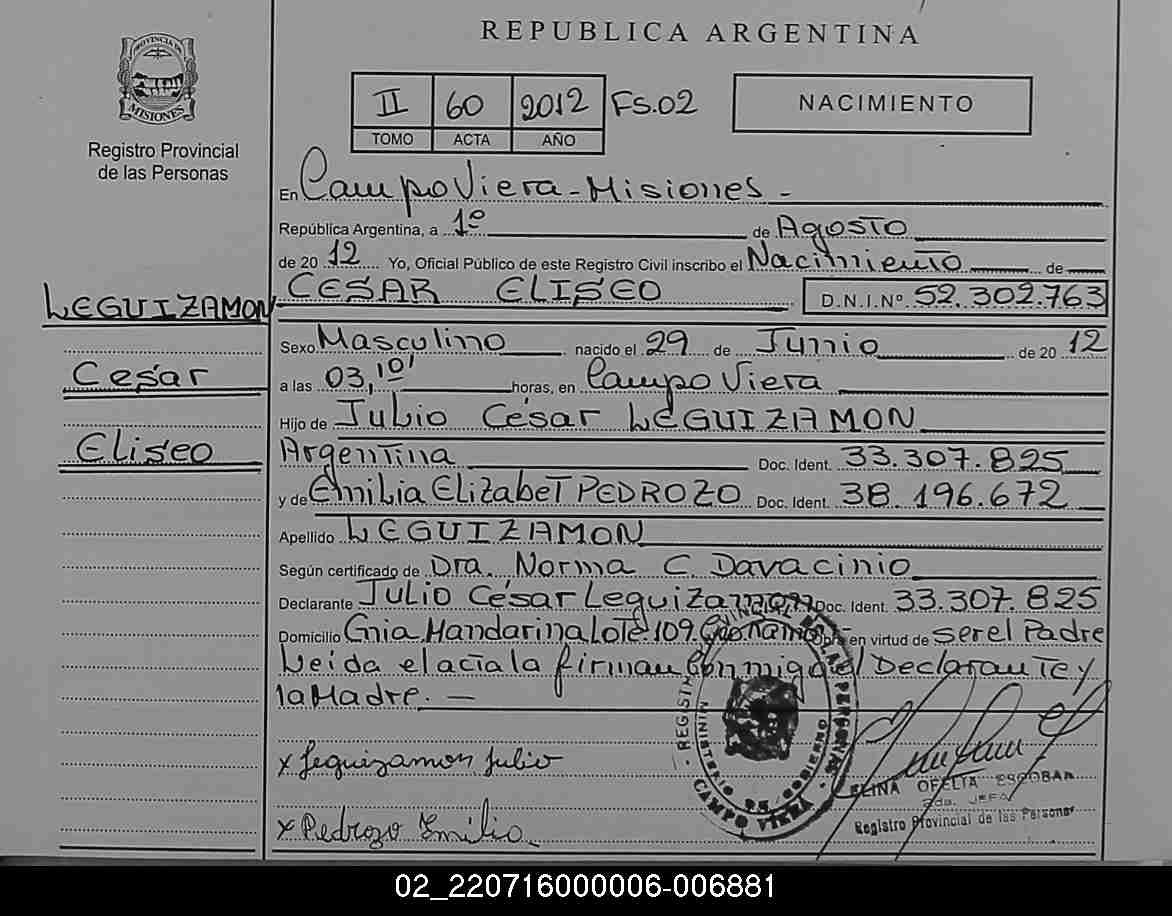 REPUBLICA ARGENTINA
PROVINCIA DE
MISIONES
Registro Provincial
de las Personas
II 60 2012 Fs.02
TOMO ACTA AÑO
NACIMIENTO
En Campo Viera - Misiones -
República Argentina, a 1º de Agosto
de 20 12 Yo, Oficial Público de este Registro Civil inscribo el Nacimiento de
LEGUIZAMON
Cesar
Eliseo
CESAR ELISEO D.N.I.Nº 52.302.763
Sexo Masculino nacido el 29 de Junio de 20 12
a las 03,10' horas, en Campo Viera
Hijo de Julio César LEGUIZAMON
Argentina Doc. Ident. 33.307.825
y de Emilia Elizabet PEDROZO Doc. Ident. 38.196.672
Apellido LEGUIZAMON
Según certificado de Dra. Norma C. Davacinio
Declarante Julio César Leguizamon Doc. Ident. 33.307.825
Domicilio Cnia Mandarina Lote 109 en virtud de ser el Padre
Leida el acta la firman conmigo el Declarante y
la Madre. —
x Leguizamon Julio
x Pedrozo Emilia
REGISTRO PROVINCIAL DE LAS PERSONAS
MINISTERIO DE GOBIERNO
CAMPO VIERA
ELINA OFELIA ESCOBAR
2da. JEFA
Registro Provincial de las Personas
02_220716000006-006881